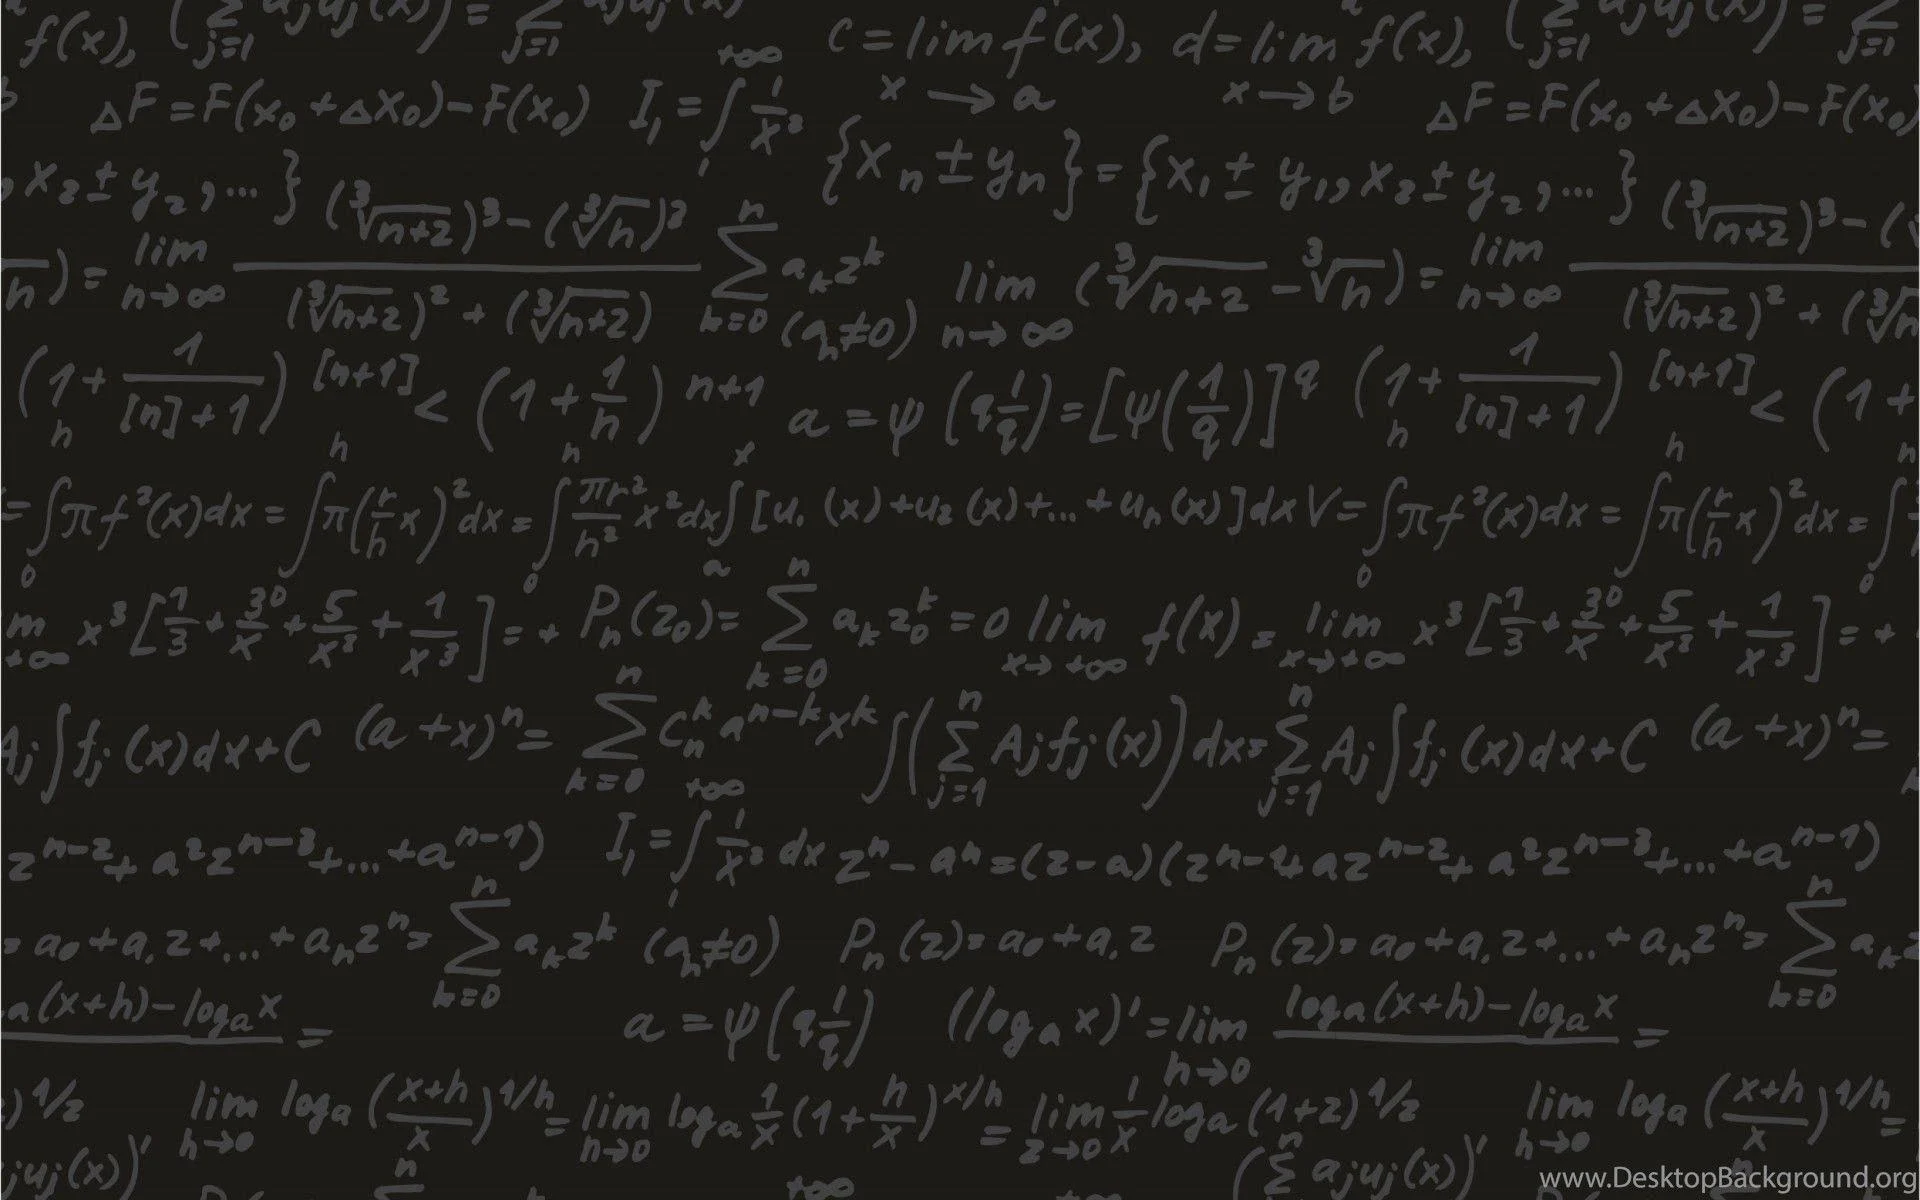 f(x), (∑j=1 ajuj(x)) = ∑j=1 ajuj(x) c = lim f(x), d = lim f(x), (∑j=1 ajuj(x)) = ∑j=1
b ΔF = F(x₀ + Δx₀) − F(x₀) I₁ = ∫₁^+∞ 1/x³ x → a x → b ΔF = F(x₀ + Δx₀) − F(x₀)
, x₂ ± y₂, ... } {xₙ ± yₙ} = {x₁ ± y₁, x₂ ± y₂, ... }
h) = lim n→∞ ((∛n+2)³ − (∛h)³)/((∛h+2)² + (∛n+2)) ∑k=0^n aₖzᵏ (aₙ≠0) lim n→∞ (∛n+2 − ∛h) = lim n→∞ ((∛n+2)³ − (/((∛h+2)² + (∛n
(1 + 1/([n]+1))^[n+1] < (1 + 1/h)^n+1 a = ψ(q 1/q) = [ψ(1/q)]^q (1 + 1/([n]+1))^[n+1] < (1 +
= ∫₀^h πf²(x)dx = ∫^h π(r/h x)²dx = ∫₀^h πr²/h² x²dx ∫ₐ^x [u₁(x) + u₂(x) + ... + uₙ(x)]dx V = ∫₀ πf²(x)dx = ∫^h π(r/h x)²dx = ∫₀
m +∞ x³[1/3 + 30/x + 5/x² + 1/x³] = + Pₙ(z₀) = ∑k=0^n aₖz₀ᵏ = 0 lim x→+∞ f(x) = lim x→+∞ x³[1/3 + 30/x + 5/x² + 1/x³] = +
Aj∫fj(x)dx + C (a + x)ⁿ = ∑k=0^n Cₙᵏaⁿ⁻ᵏxᵏ ∫(∑j=1^n Ajfj(x))dx = ∑j=1^n Aj∫fj(x)dx + C (a + x)ⁿ =
zⁿ⁻² + a²zⁿ⁻³ + ... + aⁿ⁻¹) I₁ = ∫₁^+∞ 1/x³ dx zⁿ − aⁿ = (z − a)(zⁿ⁻¹ + azⁿ⁻² + a²zⁿ⁻³ + ... + aⁿ⁻¹)
= a₀ + a₁z + ... + aₙzⁿ = ∑k=0^n aₖzᵏ (aₙ≠0) Pₙ(z) = a₀ + a₁z Pₙ(z) = a₀ + a₁z + ... + aₙzⁿ = ∑k=0^n aₖz
a(x+h) − logₐx = a = ψ(q 1/q) (logₐx)' = lim h→0 (logₐ(x+h) − logₐx) =
)^1/z lim h→0 logₐ((x+h)/x)^1/h = lim h→0 logₐ 1/x (1 + h/x)^x/h = lim z→0 1/x logₐ(1+z)^1/z lim h→0 logₐ((x+h)/x)^1/h =
juj(x))' n +∞ (∑^n ajuj(x))'
www.DesktopBackground.org